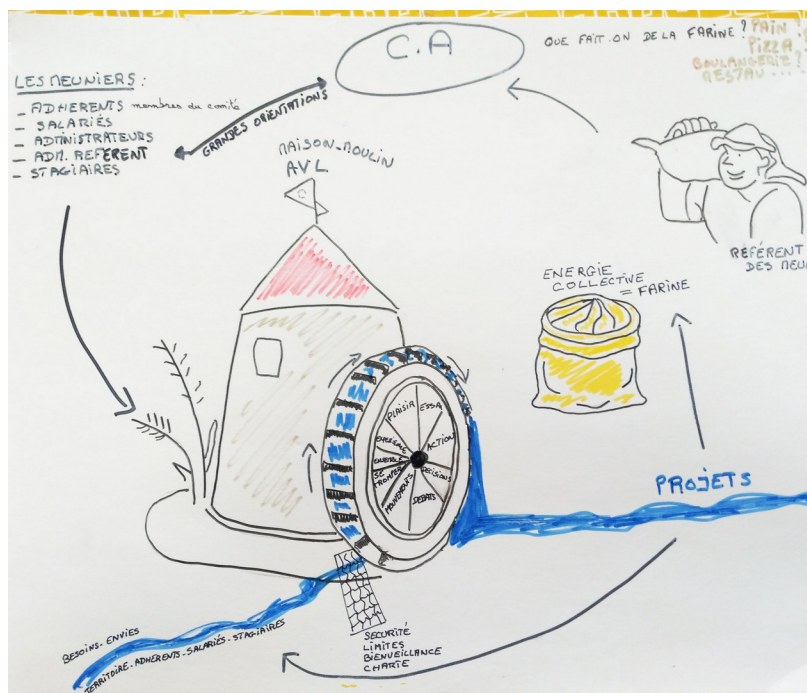 C.A
QUE FAIT-ON DE LA FARINE ? PAIN ?
PIZZA ?
BOULANGERIE ?
RESTAU ...
LES MEUNIERS :
- ADHERENTS membres du comité
- SALARIÉS
- ADMINISTRATEURS
- ADM. REFÉRENT
- STAGIAIRES
GRANDES ORIENTATIONS
MAISON-MOULIN
AVL
RÉFÉRENT
DES MEU
ENERGIE
COLLECTIVE
= FARINE
PLAISIR
ESSAI
ACTION
DECISIONS
DEBATS
MOUVEMENTS
SE
TROMPER
ENERGIE
PROJETS
SECURITÉ
LIMITES
BIENVEILLANCE
CHARTE
BESOINS - ENVIES
TERRITOIRE - ADHERENTS - SALARIÉS - STAGIAIRES